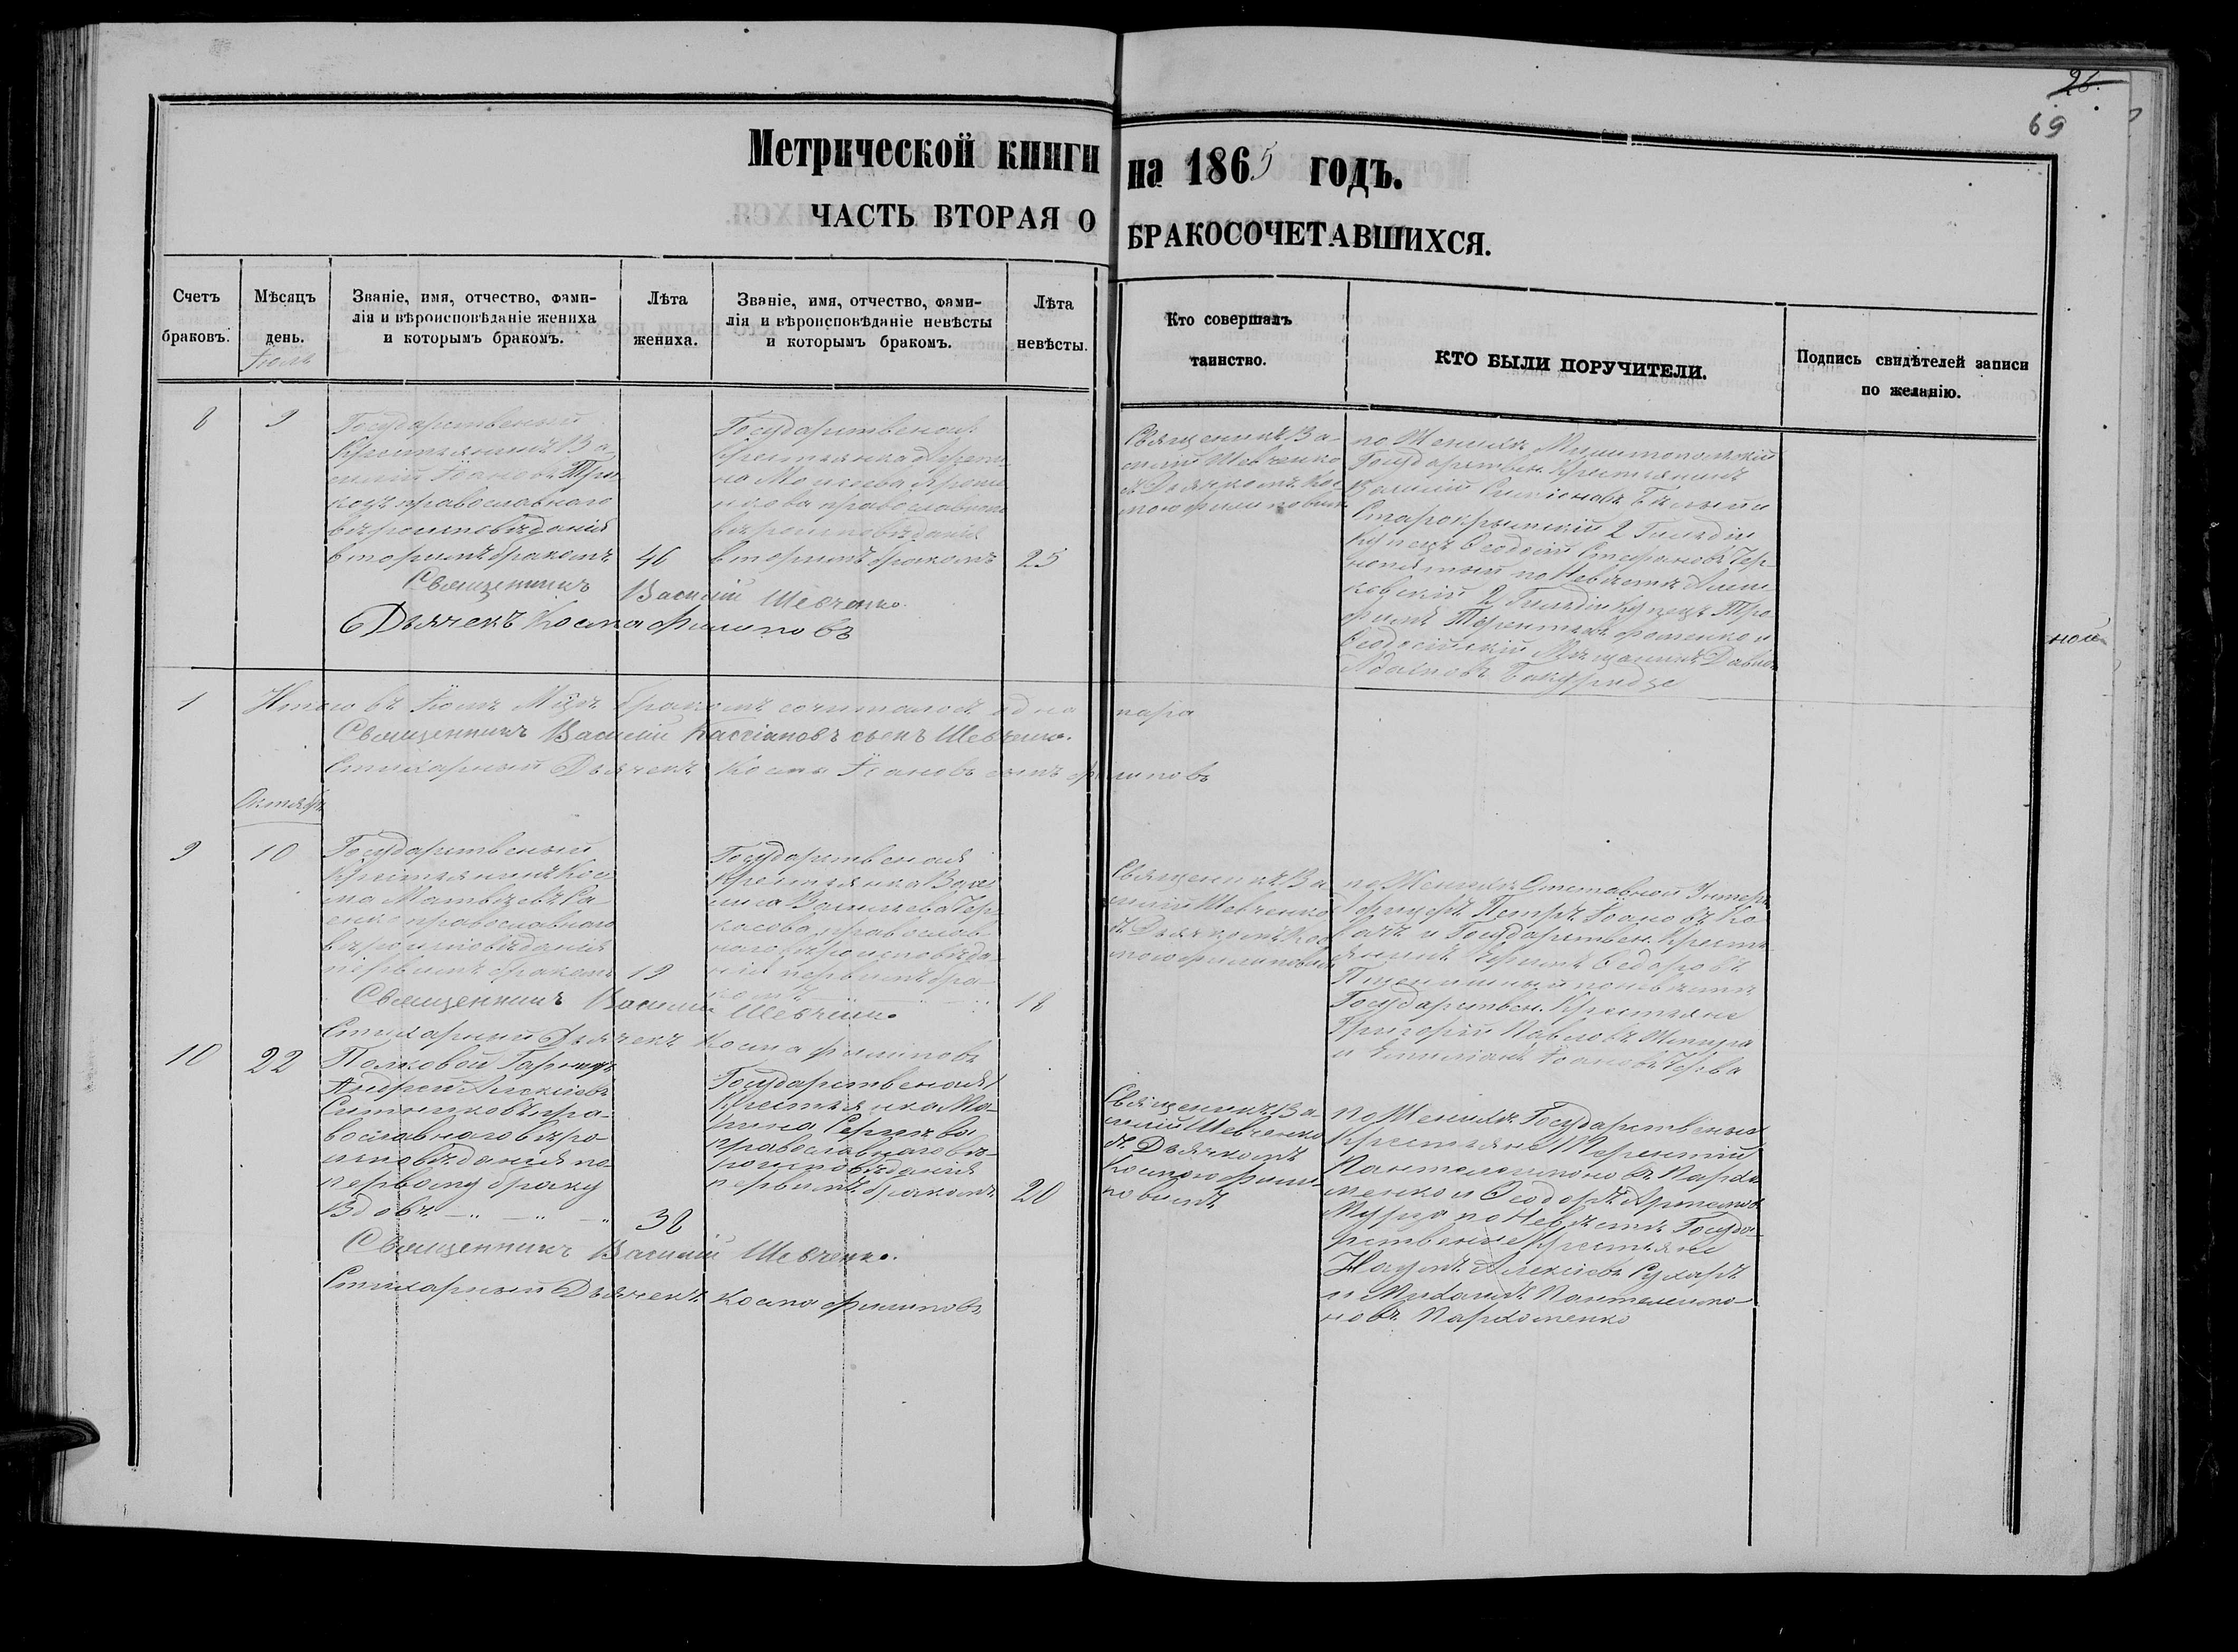 26.
69
Метрической книги на 1865 годъ.
ЧАСТЬ ВТОРАЯ О БРАКОСОЧЕТАВШИХСЯ.
Счетъ браковъ.
Мѣсяцъ день.
Званіе, имя, отчество, фами-
лія и вѣроисповѣданіе жениха
и которымъ бракомъ.
Лѣта жениха.
Званіе, имя, отчество, фами-
лія и вѣроисповѣданіе невѣсты
и которымъ бракомъ.
Лѣта невѣсты.
Кто совершалъ
таинство.
КТО БЫЛИ ПОРУЧИТЕЛИ.
Подпись свидѣтелей записи
по желанію.
Іюль
8
9
Государственный
Крестьянинъ Ва-
силій Іоановъ
православнаго
вѣроисповѣданія
вторымъ бракомъ
46
Государственая
Крестьянка
Моисеева
православнаго
вѣроисповѣданія
вторымъ бракомъ
25
Священникъ Ва-
силій Шевченко
съ Дьячкомъ Кос-
мою Филиповымъ
по Женихѣ Мелитопольскій
Государствен. Крестьянинъ
Василій
Старокрымскій 2 Гильдіи
Купецъ Феодосій Стефановъ Чер-
по Невѣстѣ
2 Гильдіи Купецъ Тро-
фимъ Терентьевъ Фоменко и
Феодосійскій Мѣщанинъ Давид
Священникъ Василій Шевченко.
Дьячекъ Косма Филиповъ
1
Итого въ Іюлѣ М-цѣ бракомъ сочиталось одна пара
Священникъ Василій Кассіановъ сынъ Шевченко.
Стихарный Дьячекъ Косма Іоановъ сынъ Филиповъ
Октябрь
9
10
Государственый
Крестьянинъ Кос-
ма Матвѣевъ Са-
енко православнаго
вѣроисповѣданія
первымъ бракомъ
19
Государственая
Крестьянка Васи-
лиса Васильева Чер-
касова православ-
наго вѣроисповѣда-
нія первымъ бра-
комъ
18
Священникъ Ва-
силій Шевченко
съ Дьячкомъ Кос-
мою Филиповымъ
по Женихѣ Отставной Унтеръ
Офицеръ Петръ Іоановъ Ко-
валь и Государствен. Кресть-
янинъ Феодоровъ
по невѣстѣ
Государствен. Крестьяне
Григорій Павловъ
и Емиліанъ Іоановъ
Священникъ Василій Шевченко
Стихарный Дьячекъ Косма Филиповъ
10
22
Полковой
Андрей Алексіевъ
Ситниковъ пра-
вославнаго вѣро-
исповѣданія по
первому браку
Вдовъ
38
Государственая
Крестьянка Ма-
рина Сергѣева
православнаго вѣ-
роисповѣданія
первымъ бракомъ
20
Священникъ Ва-
силій Шевченко
съ Дьячкомъ
Космою Фили-
повымъ
по Женихѣ Государственые
Крестьяне Терентій
Пантелеимоновъ Пархо-
менко и Феодоръ Артемовъ
по Невѣстѣ Госуда-
рственые Крестьяне
Наумъ Алексіевъ Сухарь
и Михаилъ Пантелеимо-
новъ Пархоменко
Священникъ Василій Шевченко.
Стихарный Дьячекъ Косма Филиповъ